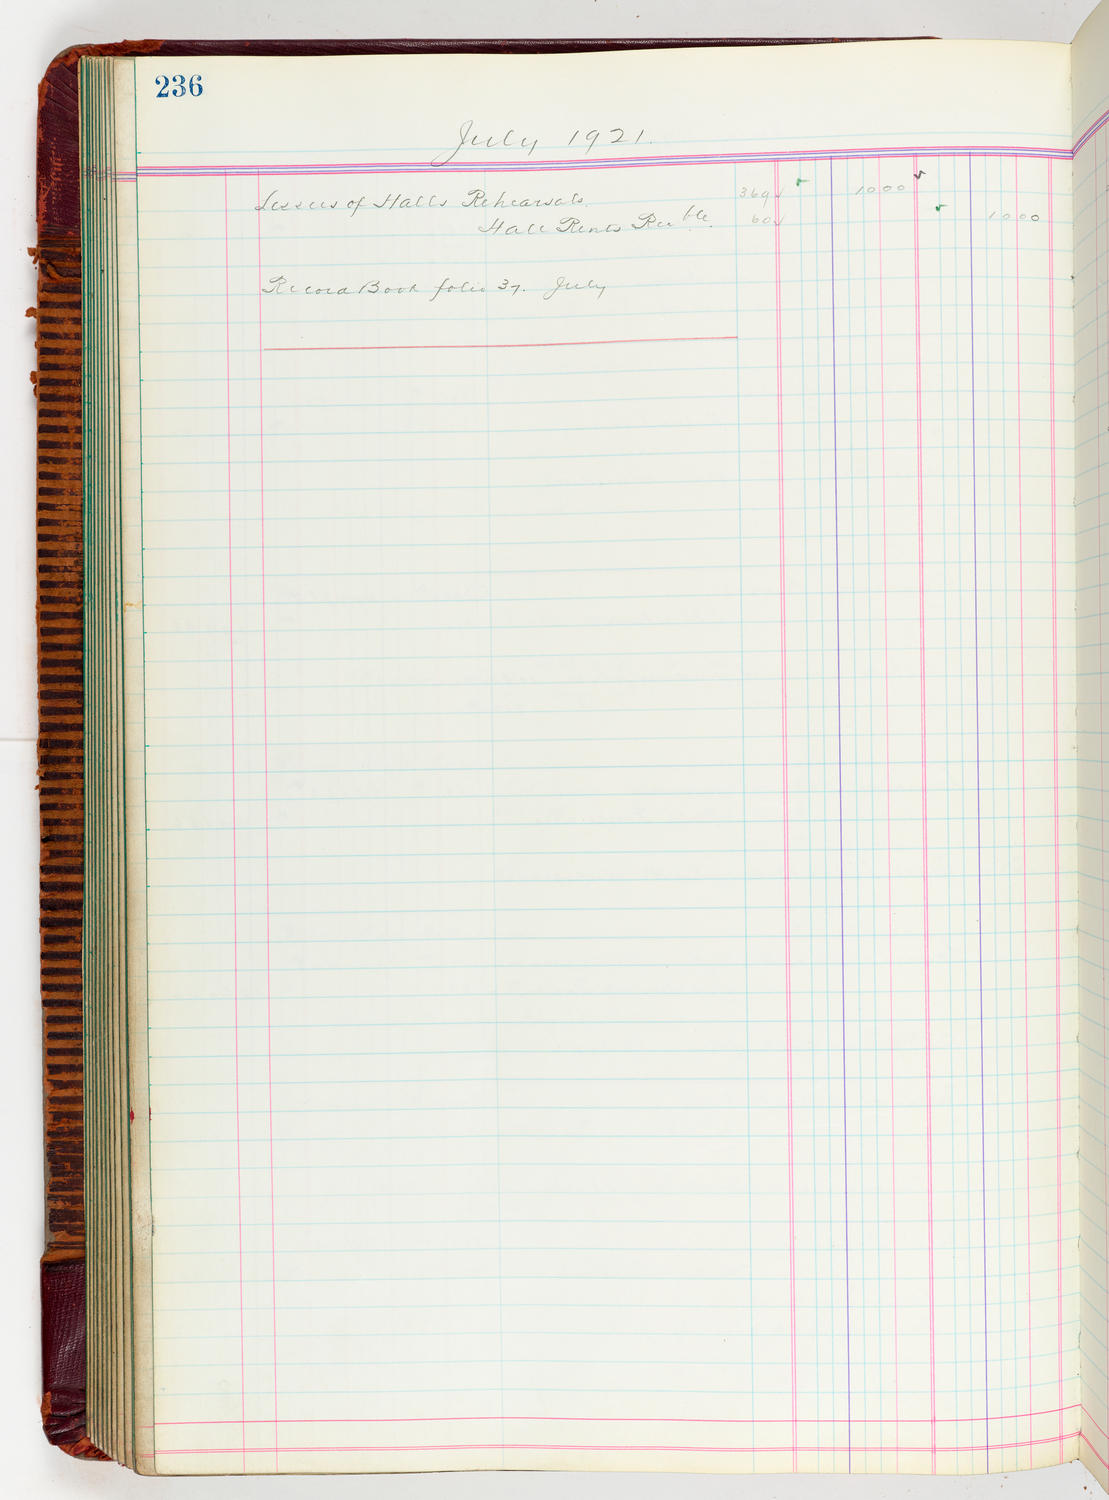 236
July 1921.
Lessees of Halls Rehearsals. 369 ✓ 1000
Hall Rents Rec'ble. 60 ✓ 1000
Record Book folio 37. July